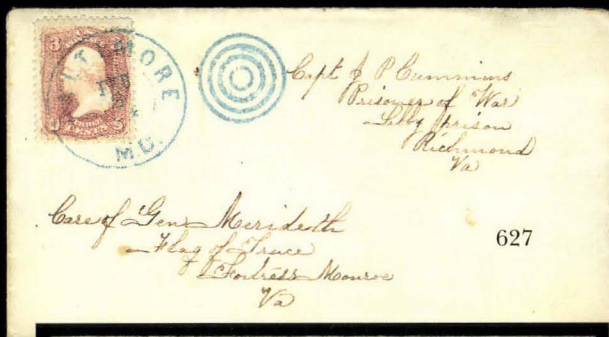 BALTIMORE
MD.
Capt J P Cummins
Prisoner of War
Libby prison
Richmond
Va
Care of Gen Merideth
Flag of Truce
Fortress Monroe
Va
627